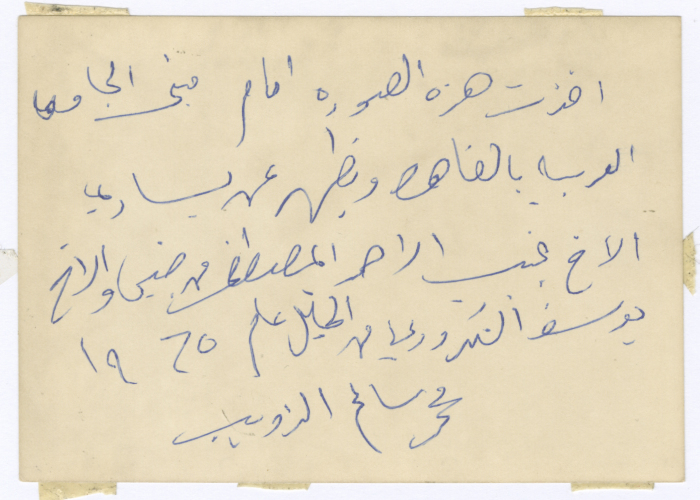 اخذت هذه الصوره امام مبنى الجامعه
العربيه بالقاهره ويظهر عن يساري
الاخ نجيب الاحمد المصطفى من جنين والاخ
يوسف التكروري من الخليل عام ١٩٦٥
محمد سالم الذويب